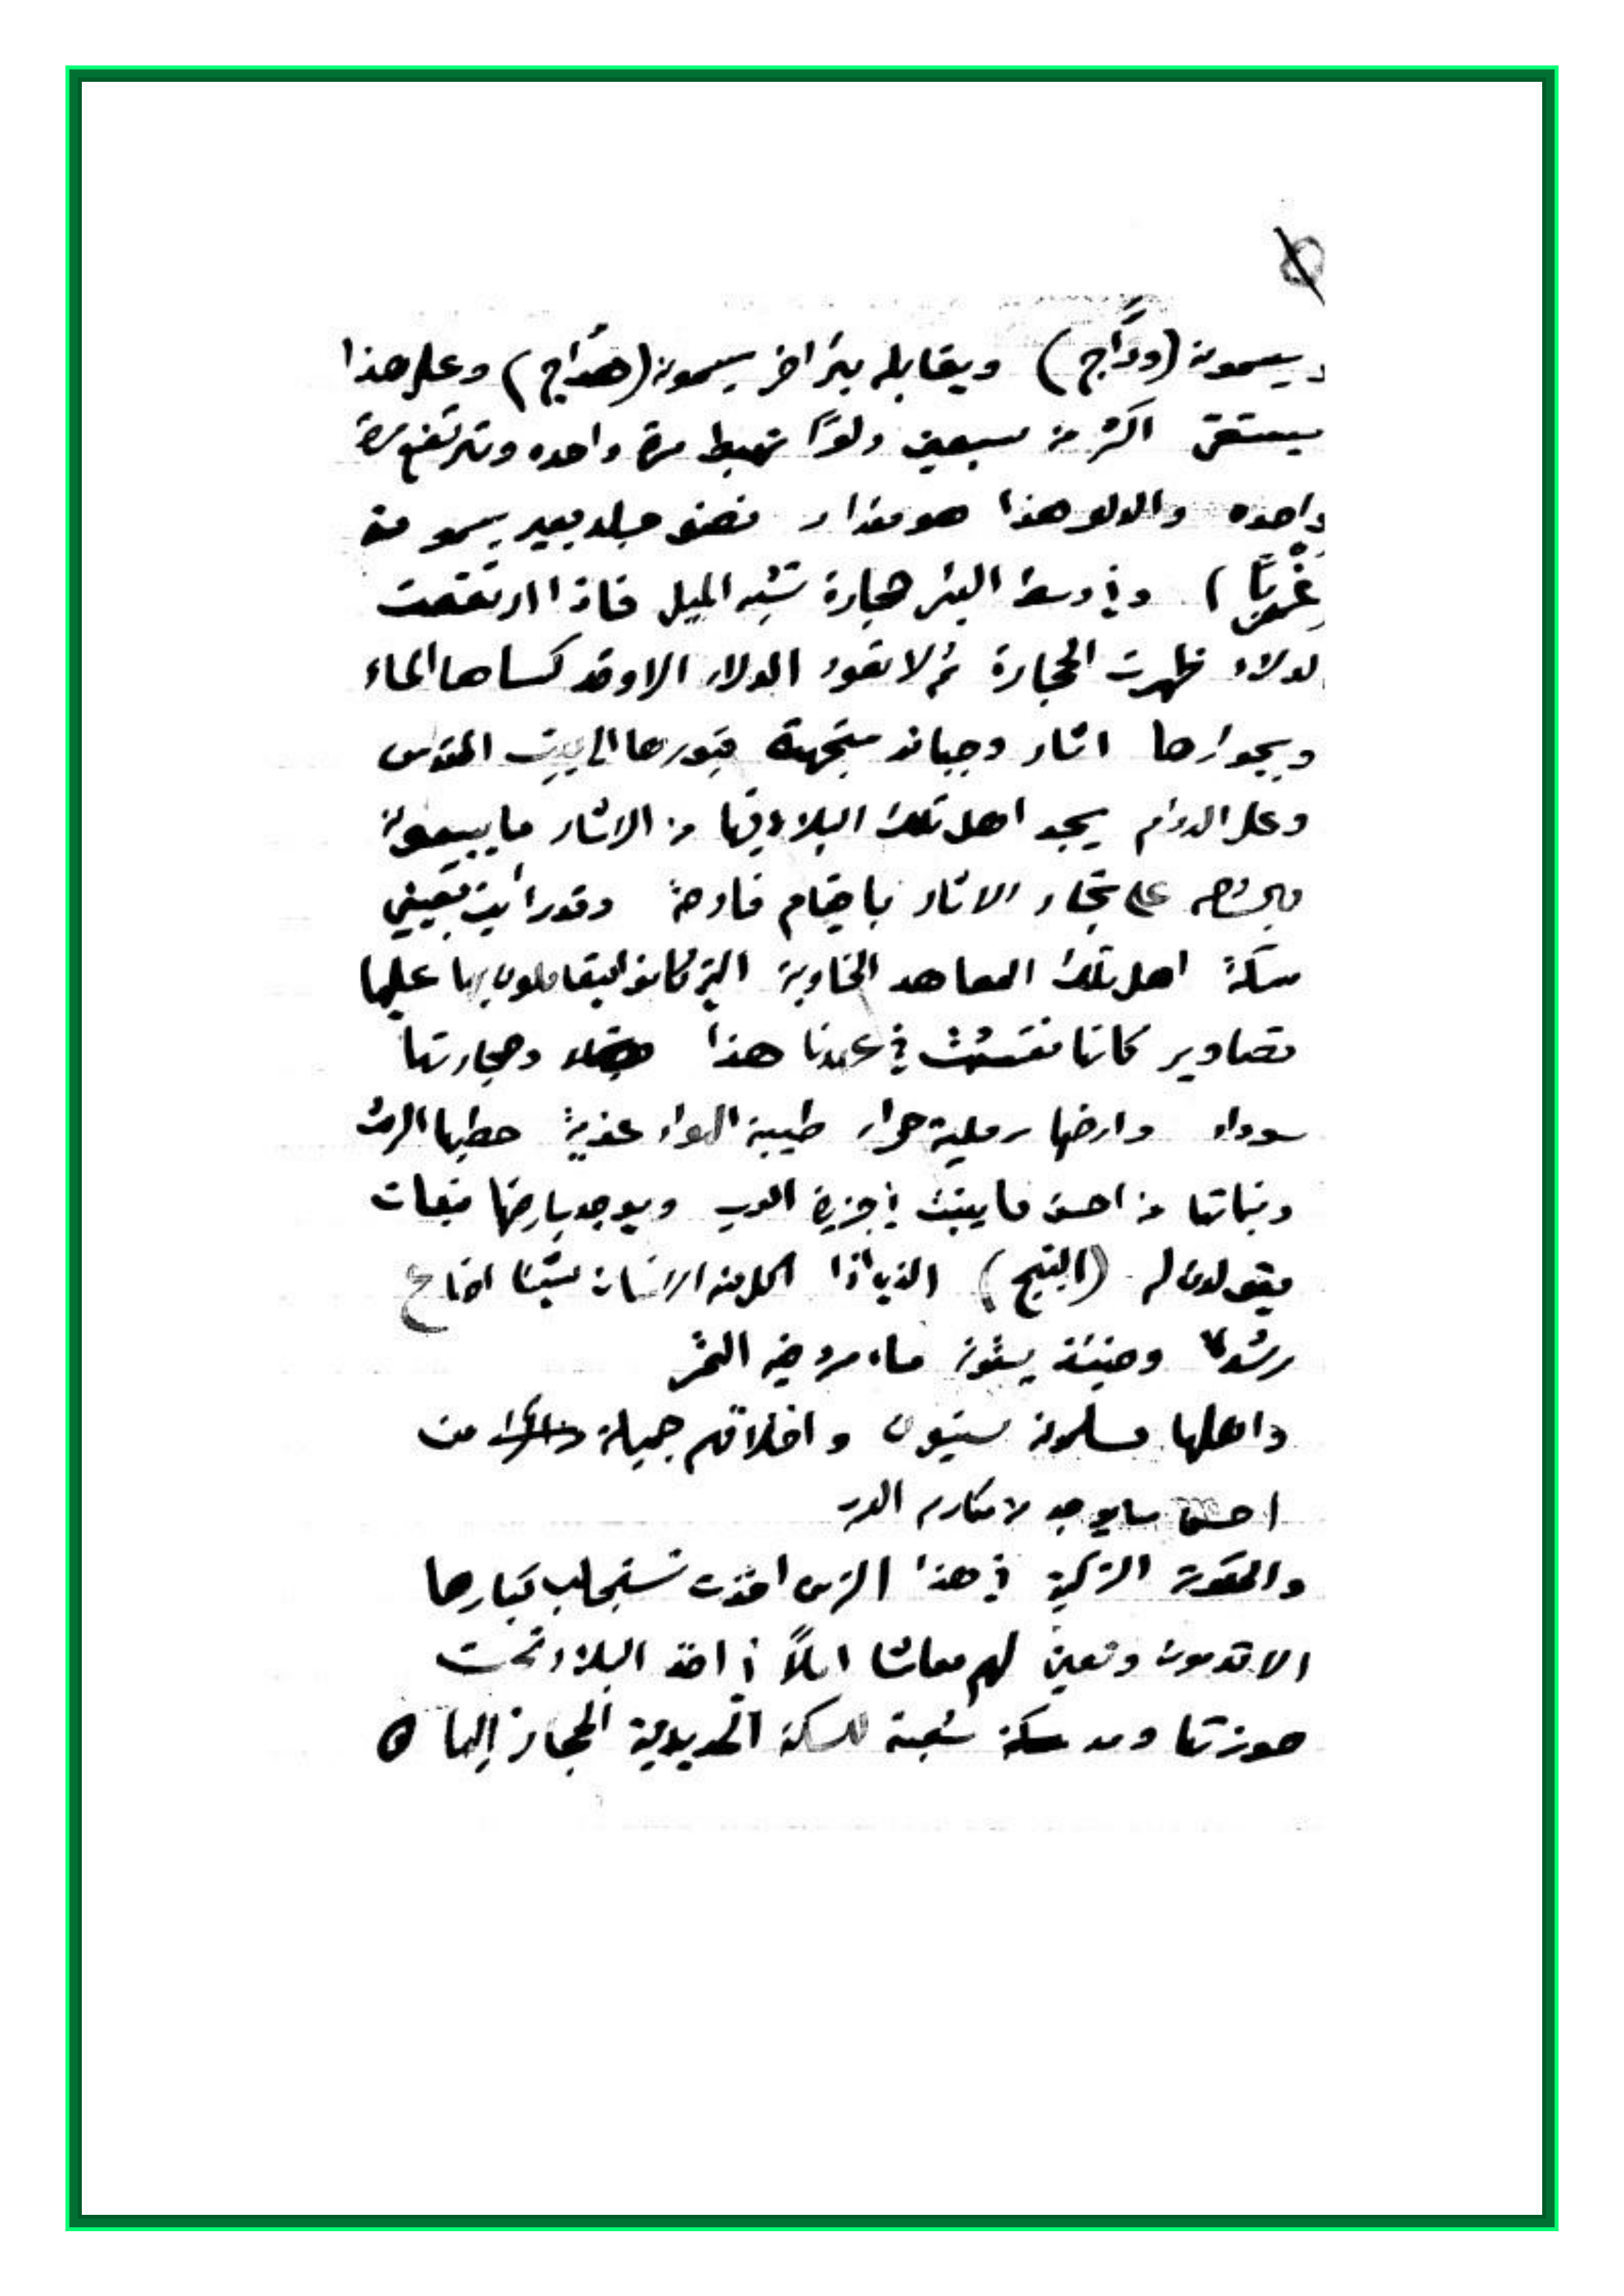 ويسمونه (ودّاج) ويقابله بئر اخر يسمونه (هدّاج) وعلى هذا
يستقى اكثر من سبعين دلوًا تهبط مرة واحده وترتفع مرة
واحده والدلو هذا هو مقدار نصف جلد بعير يسمو منه
غربًا) وفي وسط البئر حجارة تشبه الميل فاذا ارتفعت
الدلاء ظهرت الحجارة ثم لا تعود الدلاء الا وقد كساها الماء
وبجوارها اثار وجبانه متجهة قبورها الى بيت المقدس
وعلى الدوام يجد اهل تلك البلاد فيها من الاثار ما يبيعونه
على تجار الاثار باقيام فادحة وقد رأيت بعيني
سكة اهل تلك المعاهد الخاوية التي كانو ليتعاملون بها عليها
تصاوير كانها نقشت في عهدنا هذا وحجارتها
سوداء وارضها رملية حمراء طيبة الهواء عذية حطبها الرمث
ونباتها من احسن ما ينبت في جزيرة العرب ويوجد بارضها نبعات
يقولون له (البنج) الذي اذا اكل منه الانسان شيئا اضاع
رشده وحينئذ يسقونه ماء مروخ فيه التمر
واهلها مسلمون سنيون واخلاقهم جميلة من
احسن ما يوجد لا مكارم العرب
والحكومة التركية في هذا الزمن اخذت تستجلب كبارها
الاقدمون وتعين لهم معاشا املاً في اخذ البلاد تحت
حوزتها ومد سكة شعبة للسكة الحديدية الحجاز إليها